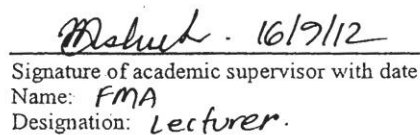 16/9/12
Signature of academic supervisor with date
Name: FMA
Designation: Lecturer.